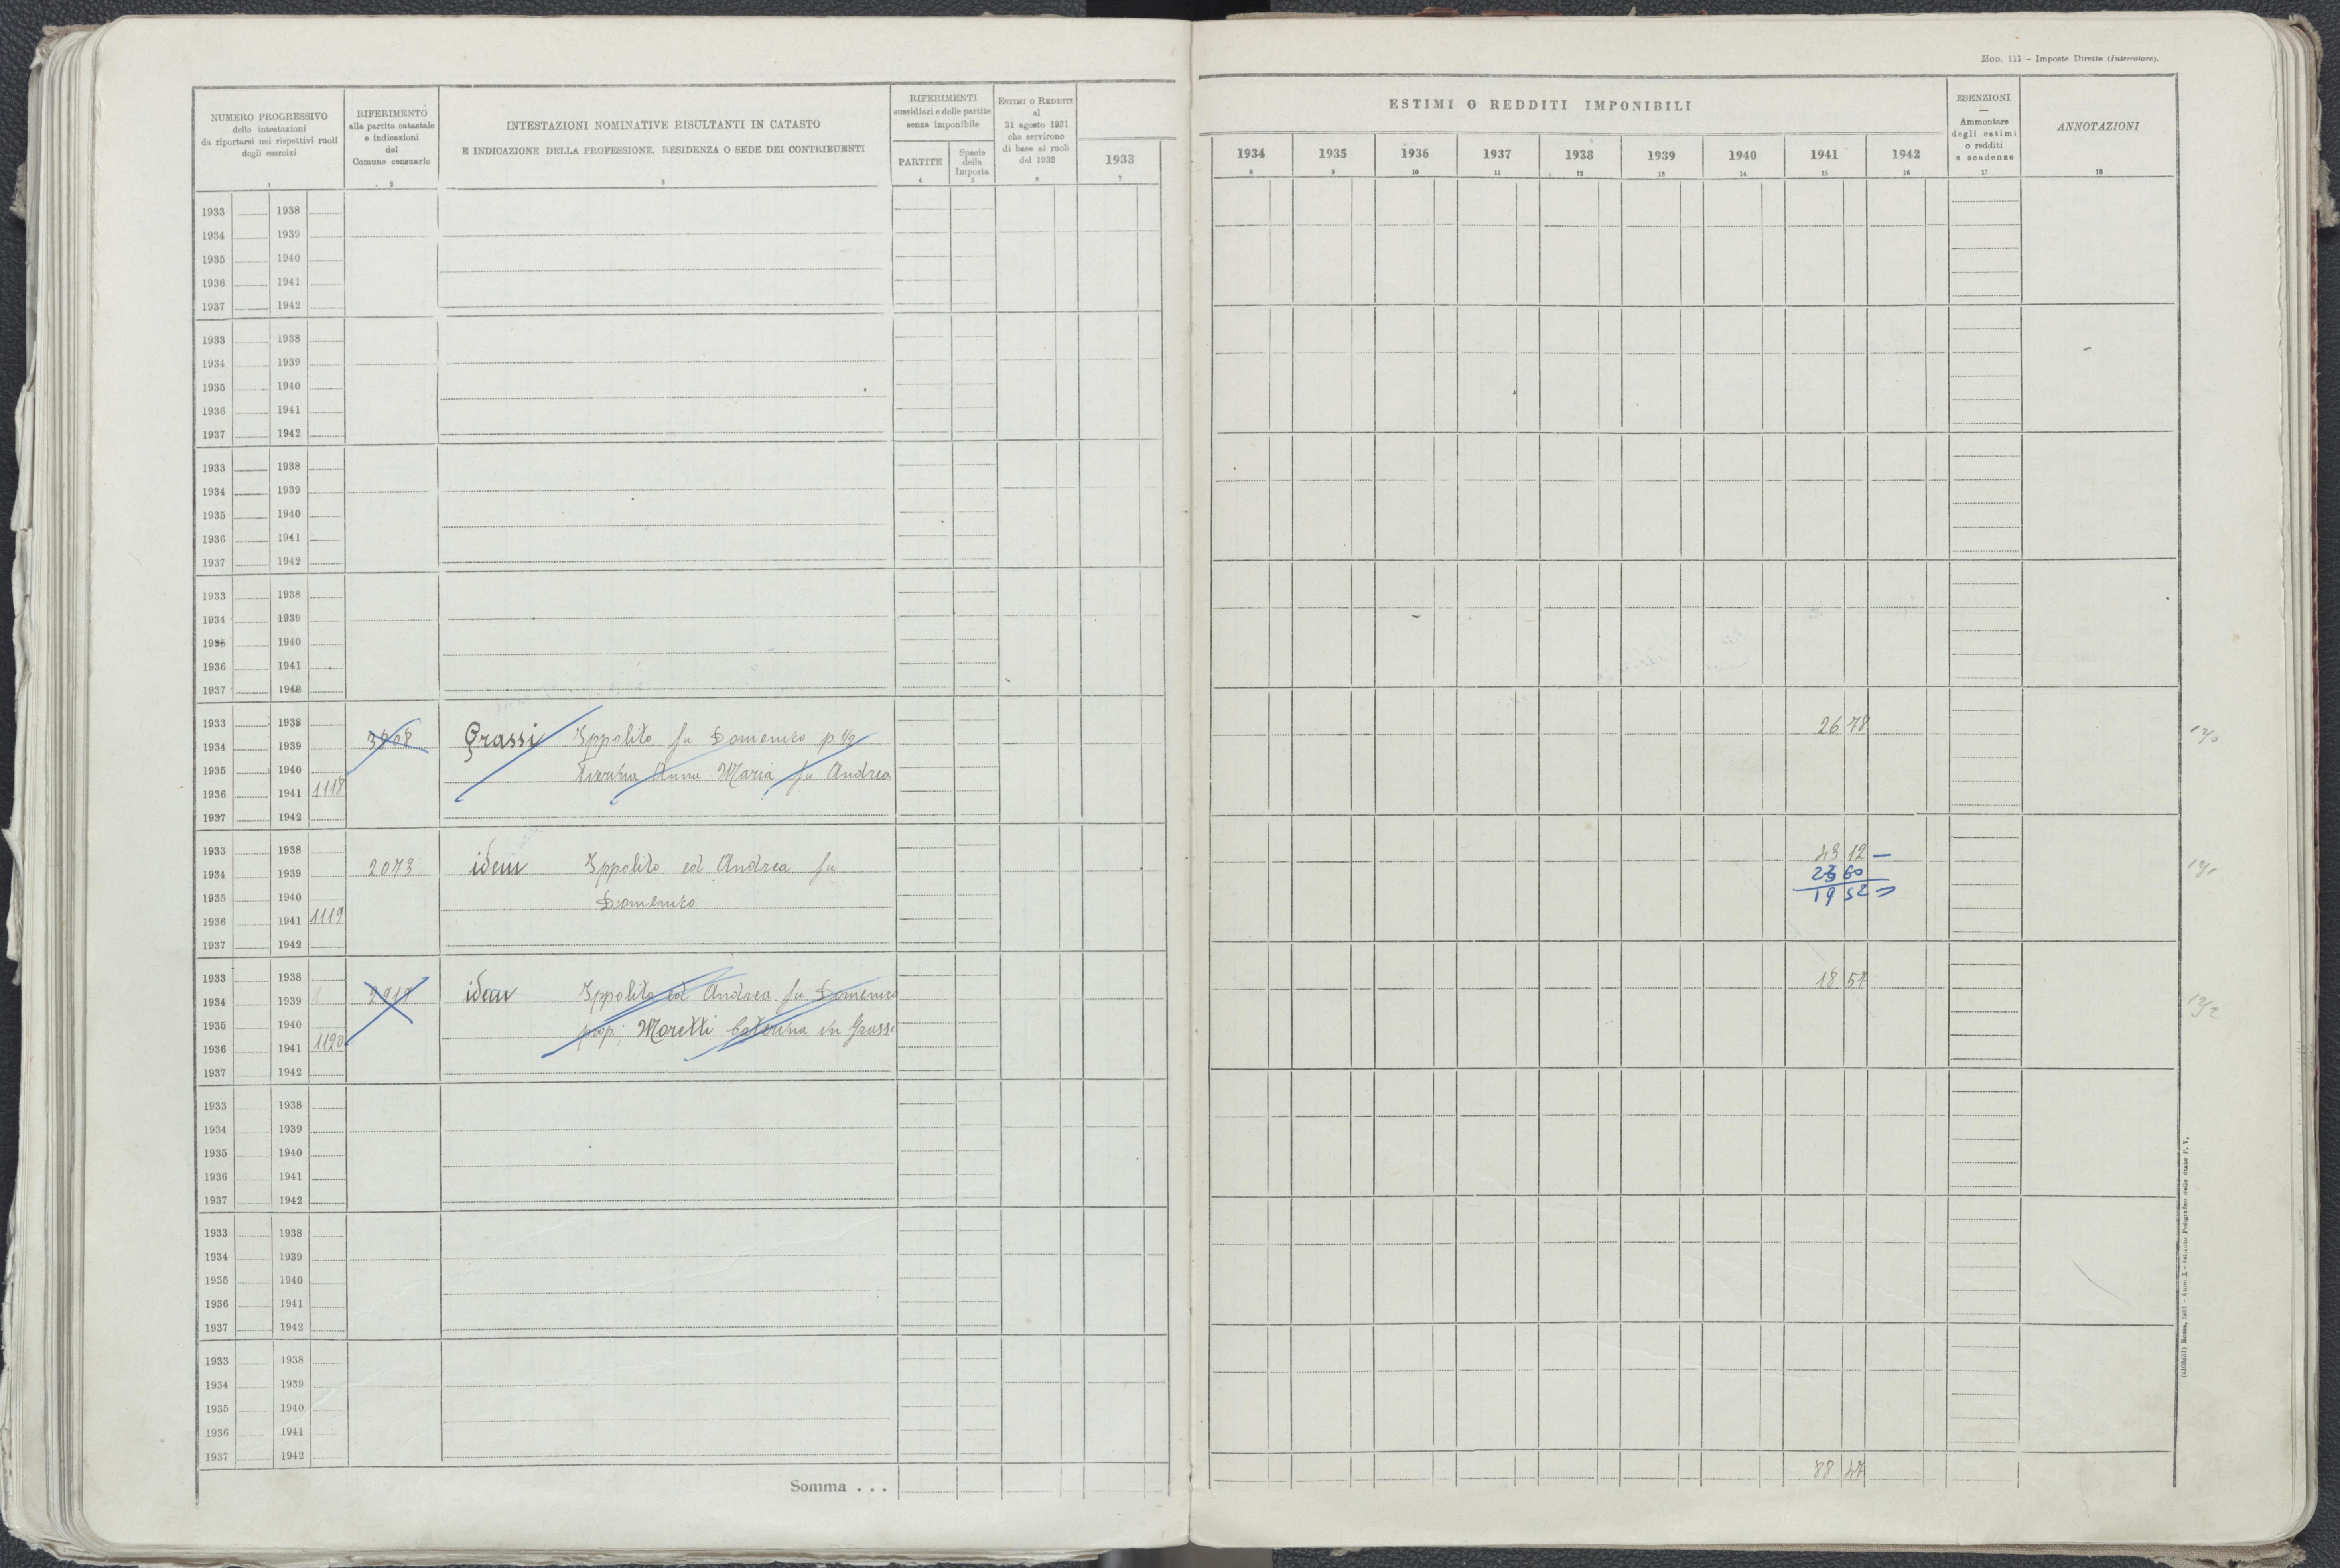 Mod. 111 – Imposte Dirette (Intercalare).
NUMERO PROGRESSIVO
delle intestazioni
da riportarsi nei rispettivi ruoli
degli esercizi
1
RIFERIMENTO
alla partita catastale
e indicazioni
del
Comune censuario
2
INTESTAZIONI NOMINATIVE RISULTANTI IN CATASTO
E INDICAZIONE DELLA PROFESSIONE, RESIDENZA O SEDE DEI CONTRIBUENTI
3
RIFERIMENTI
sussidiari e delle partite
senza imponibile
PARTITE
4
Specie
della
Imposta
5
ESTIMI O REDDITI
al
31 agosto 1931
che servirono
di base ai ruoli
del 1932
6
1933
7
ESTIMI O REDDITI IMPONIBILI
1934 1935 1936 1937 1938 1939 1940 1941 1942
8 9 10 11 12 13 14 15 16
ESENZIONI
—
Ammontare
degli estimi
o redditi
e scadenze
17
ANNOTAZIONI
18
1933 1938
1934 1939
1935 1940
1936 1941
1937 1942
1933 1938
1934 1939
1935 1940
1936 1941
1937 1942
1933 1938
1934 1939
1935 1940
1936 1941
1937 1942
1933 1938
1934 1939
1935 1940
1936 1941
1937 1942
1933 1938
1934 1939 Grassi Ippolito fu Domenico p. 1/2 26 78
1935 1940 Anna Maria fu Andrea
1936 1941 1118
1937 1942
1933 1938
1934 1939 2073 idem Ippolito ed Andrea fu 43 12 —
23 60
1935 1940 Domenico 19 52
1936 1941 1119
1937 1942
1933 1938
1934 1939 idem Ippolito ed Andrea fu Domenico 18 57
1935 1940 prop; Moretti Caterina in Grassi
1936 1941 1120
1937 1942
1933 1938
1934 1939
1935 1940
1936 1941
1937 1942
1933 1938
1934 1939
1935 1940
1936 1941
1937 1942
1933 1938
1934 1939
1935 1940
1936 1941
1937 1942
Somma . . . 88 47